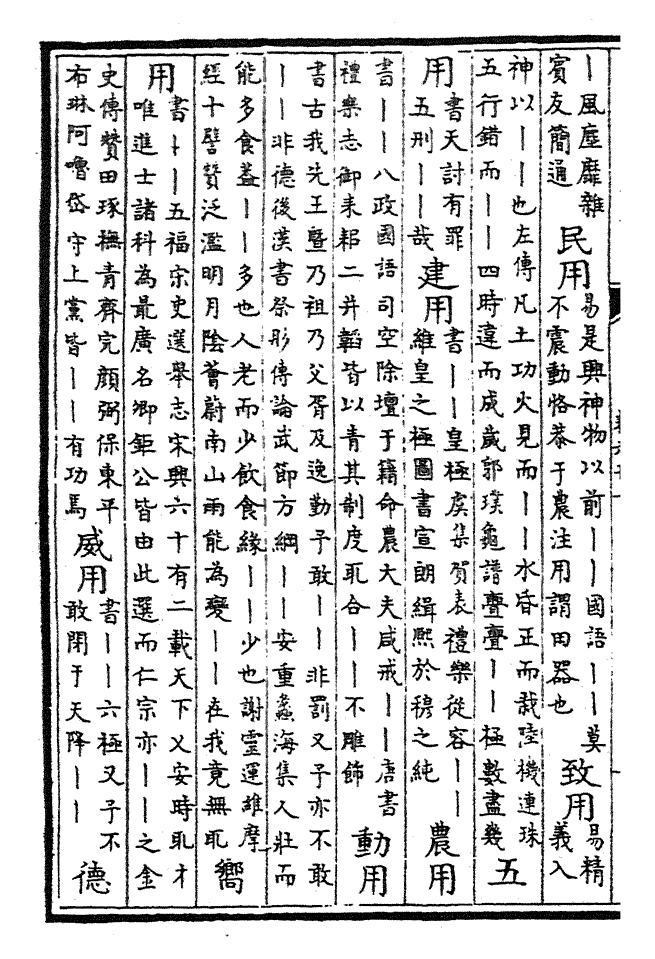 ｜風塵靡雜
賓友簡通
民用
易是興神物以前｜｜國語｜｜莫
不震動恪恭于農注用謂田器也
致用
易精
義入
神以｜｜也左傳凡土功火見而｜｜水昏正而栽陸機連珠
五行錯而｜｜四時違而成歲郭璞龜譜亹亹｜｜極數盡幾
五
用
書天討有罪
五刑｜｜哉
建用
書｜｜皇極虞集賀表禮樂從容｜｜
維皇之極圖書宣朗緝熙於穆之純
農用
書｜｜八政國語司空除壇于籍命農大夫咸戒｜｜唐書
禮樂志御耒耜二并韜皆以青其制度取合｜｜｜不雕飾
動用
書古我先王暨乃祖乃父胥及逸勤予敢｜｜非罰又予亦不敢
｜｜非德後漢書祭肜傳論武節方綱｜｜安重蠡海集人壯而
能多食蓋｜｜多也人老而少飲食緣｜｜少也謝靈運維摩
經十譬贊泛濫明月陰薈蔚南山雨能為變｜｜在我竟無取
嚮
用
書｜｜五福宋史選舉志宋興六十有二載天下乂安時取才
唯進士諸科為最廣名卿鉅公皆由此選而仁宗亦｜｜之金
史傳贊田琢撫青齊完顏弼保東平
布琳阿嚕岱守上黨皆｜｜有功焉
威用
書｜｜六極又予不
敢閉于天降｜｜
德